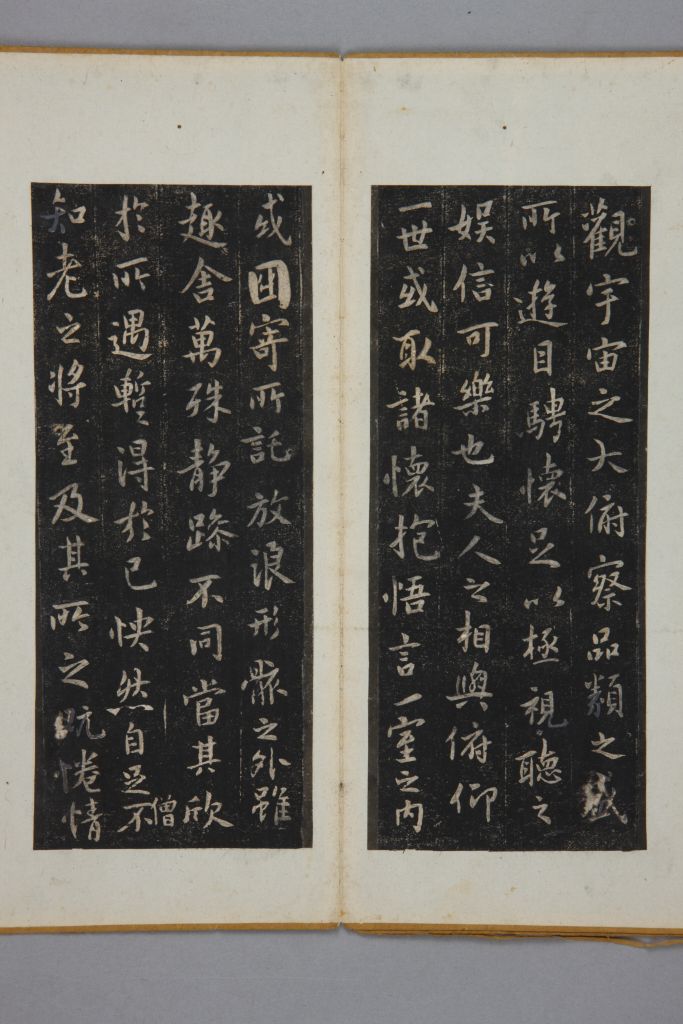 觀宇宙之大俯察品類之盛
所以遊目騁懷足以極視聽之
娱信可樂也夫人之相與俯仰
一世或取諸懷抱悟言一室之内
或因寄所託放浪形骸之外雖
趣舍萬殊静躁不同當其欣
於所遇暫得於己怏然自足不
僧
知老之將至及其所之既惓情